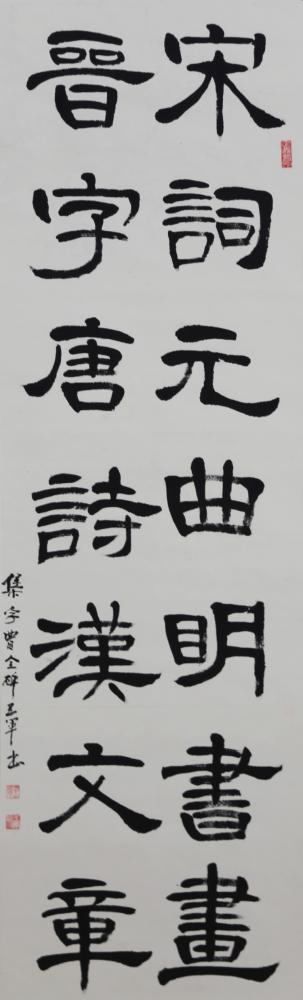 宋詞元曲明書畫
晉字唐詩漢文章
集字曹全碑王軍書